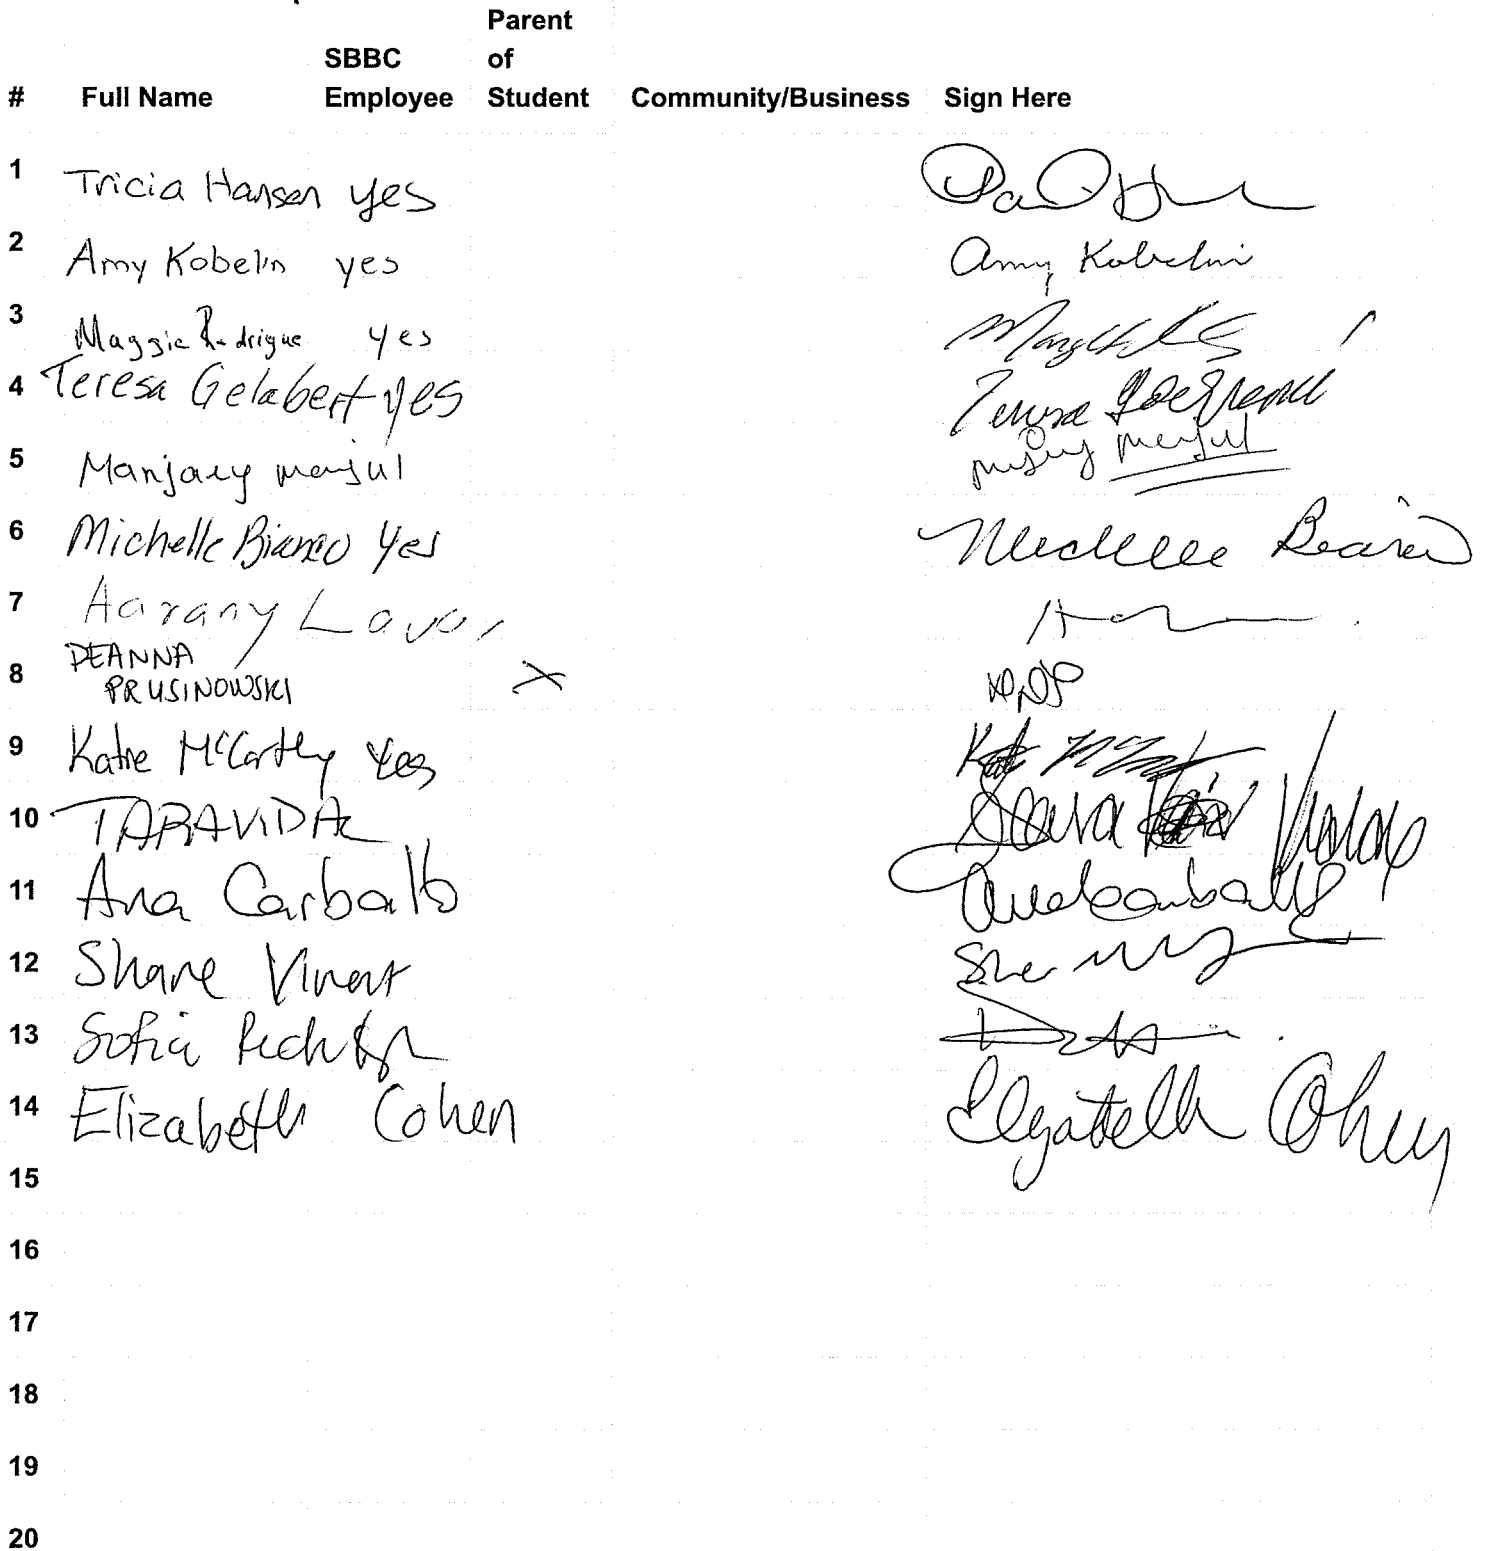 Parent
SBBC of
# Full Name Employee Student Community/Business Sign Here
1 Tricia Hansen yes
2 Amy Kobelin yes Amy Kobelin
3 Maggie Rodrigue yes
4 Teresa Gelabert yes Teresa
5 Manjary
6 Michelle Bianco Yes Michelle Bianco
7 Aarany
DEANNA
8 PRUSINOWSKI X
9 Katie McCarthy Yes
10 TARAVIDAL
11 Ana Carballo Ana Carballo
12 Shane Vincent
13 Sofia
14 Elizabeth Cohen Elizabeth Cohen
15
16
17
18
19
20